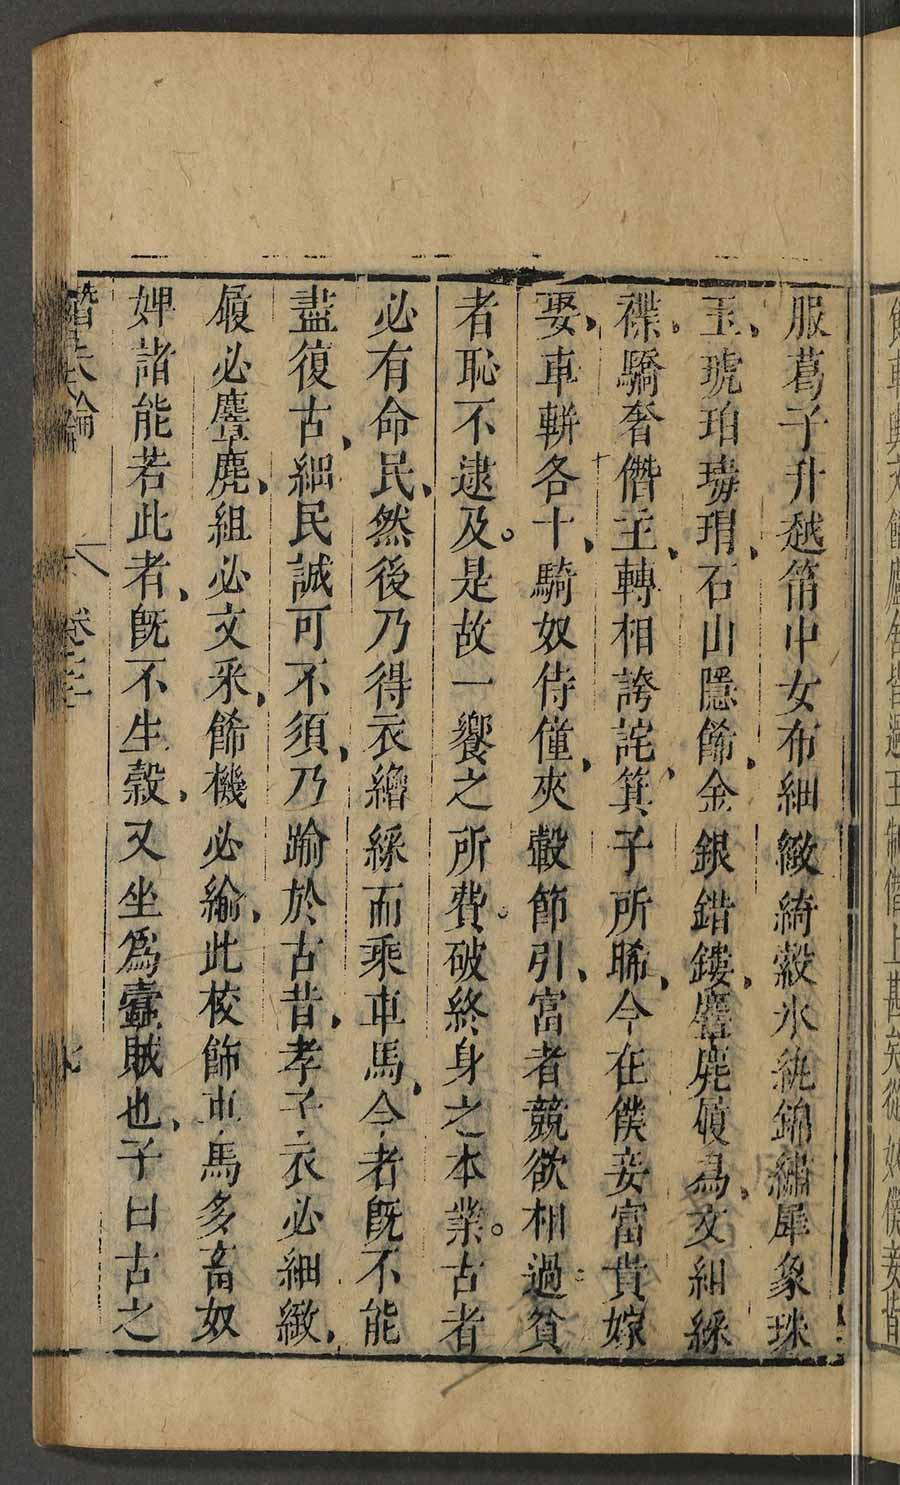 服葛子升越筩中女布細緻綺縠氷紈錦繡犀象珠
玉、琥珀瑇瑁、石山隱餙、金銀錯鏤、麞麂履舃、文組綵
褋。驕奢僭主、轉相誇詫、箕子所晞、今在僕妾富貴嫁
娶、車輧各十、騎奴侍僮、夾轂節引、富者競欲相過貧
者恥不逮及。是故一饗之所費。破終身之本業。古者
必有命民、然後乃得衣繒綵而乘車馬、今者旣不能
盡復古、細民誠可不須、乃踰於古昔、孝子、衣必細緻、
履必麞麂、組必文采、餙機必緰、此校飾車馬多畜奴
婢諸能若此者、旣不生穀、又坐爲蠹賊也、子曰古之
卷之三
七